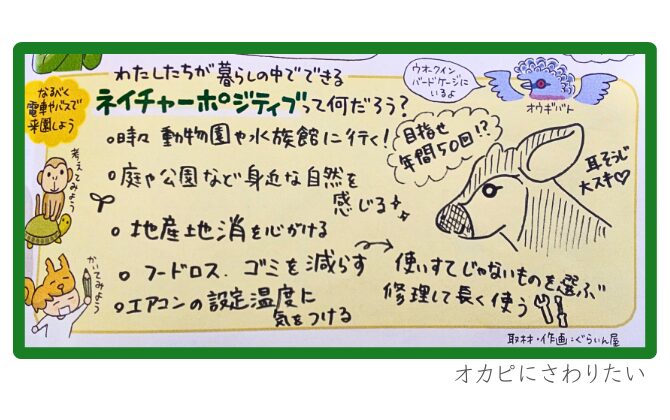 わたしたちが暮らしの中でできる
ネイチャーポジティブって何だろう?
なるべく
電車やバスで
来園しよう
ウオークイン
バードケージに
いるよ
オウギバト
考えてみよう
かいてみよう
時々 動物園や水族館に行く!
目指せ
年間50回!?
庭や公園など身近な自然を
感じる
地産地消を心がける
フードロス、ゴミを減らす
使いすてじゃないものを選ぶ
修理して長く使う
エアコンの設定温度に
気をつける
耳そうじ
大スキ♡
取材・作画:ぐらいん屋
オカピにさわりたい